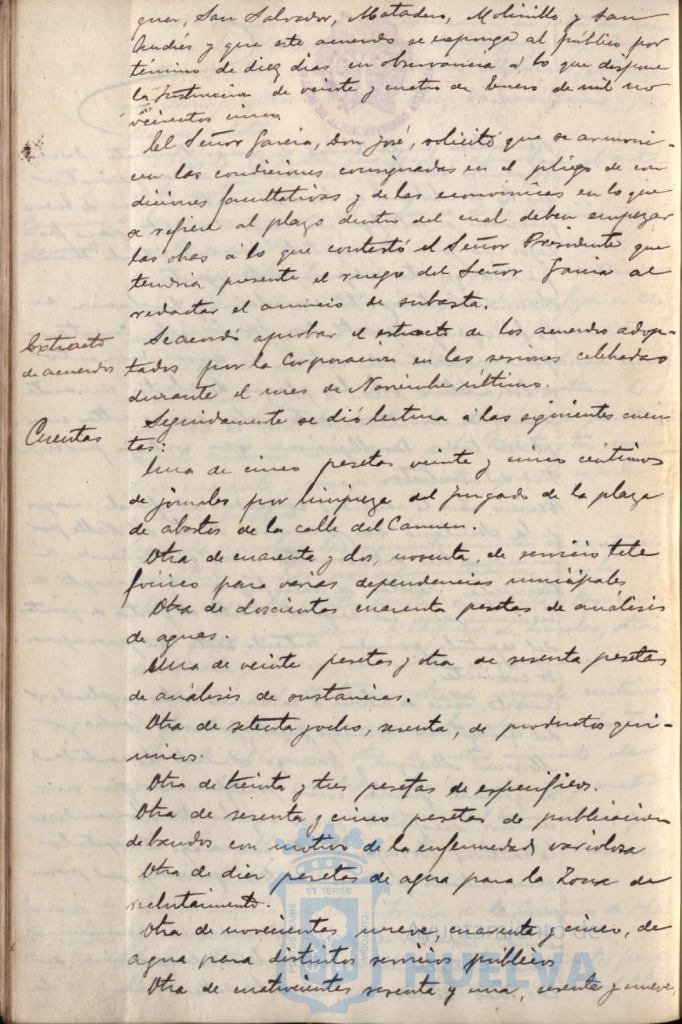 guer, San Salvador, Matadero, Molinillo y San
Andrés y que este acuerdo se exponga al público por
término de diez dias en observancia á lo que dispone
la Instruccion de veinte y cuatro de Enero de mil no
vecientos cinco.
El Señor García, Don José, solicitó que se armoni-
cen las condiciones consignadas en el pliego de con
diciones facultativas y de las económicas en lo que
se refiere al plazo dentro del cual deben empezar
las obras á lo que contestó el Señor Presidente que
tendria presente el ruego del Señor Garcia al
redactar el anuncio de subasta.
Extracto
de acuerdos
Se acordó aprobar el extracto de los acuerdos adop-
tados por la Corporacion en las sesiones celebradas
durante el mes de Noviembre último.
Cuentas
Seguidamente se dió lectura á las siguientes cuen
tas:
Una de cinco pesetas veinte y cinco céntimos
de jornales por limpieza del juzgado de la plaza
de abastos de la calle del Carmen.
Otra de cuarenta y dos, noventa, de servicio tele
fónico para varias dependencias municipales
Otra de doscientas cuarenta pesetas de análisis
de aguas.
Una de veinte pesetas y otra de sesenta pesetas
de análisis de sustancias.
Otra de setenta y ocho, sesenta, de productos quí-
micos.
Otra de treinta y tres pesetas de específicos.
Otra de sesenta y cinco pesetas de publicacion
de bandos con motivo de la enfermedad variolosa
Otra de diez pesetas de agua para la Zona de
reclutamiento.
Otra de novecientas nueve, cuarenta y cinco, de
agua para distintos servicios públicos
Otra de cuatrocientas sesenta y una, sesenta y nueve,
ET TERRÆ
Ayuntamiento de
HUELVA